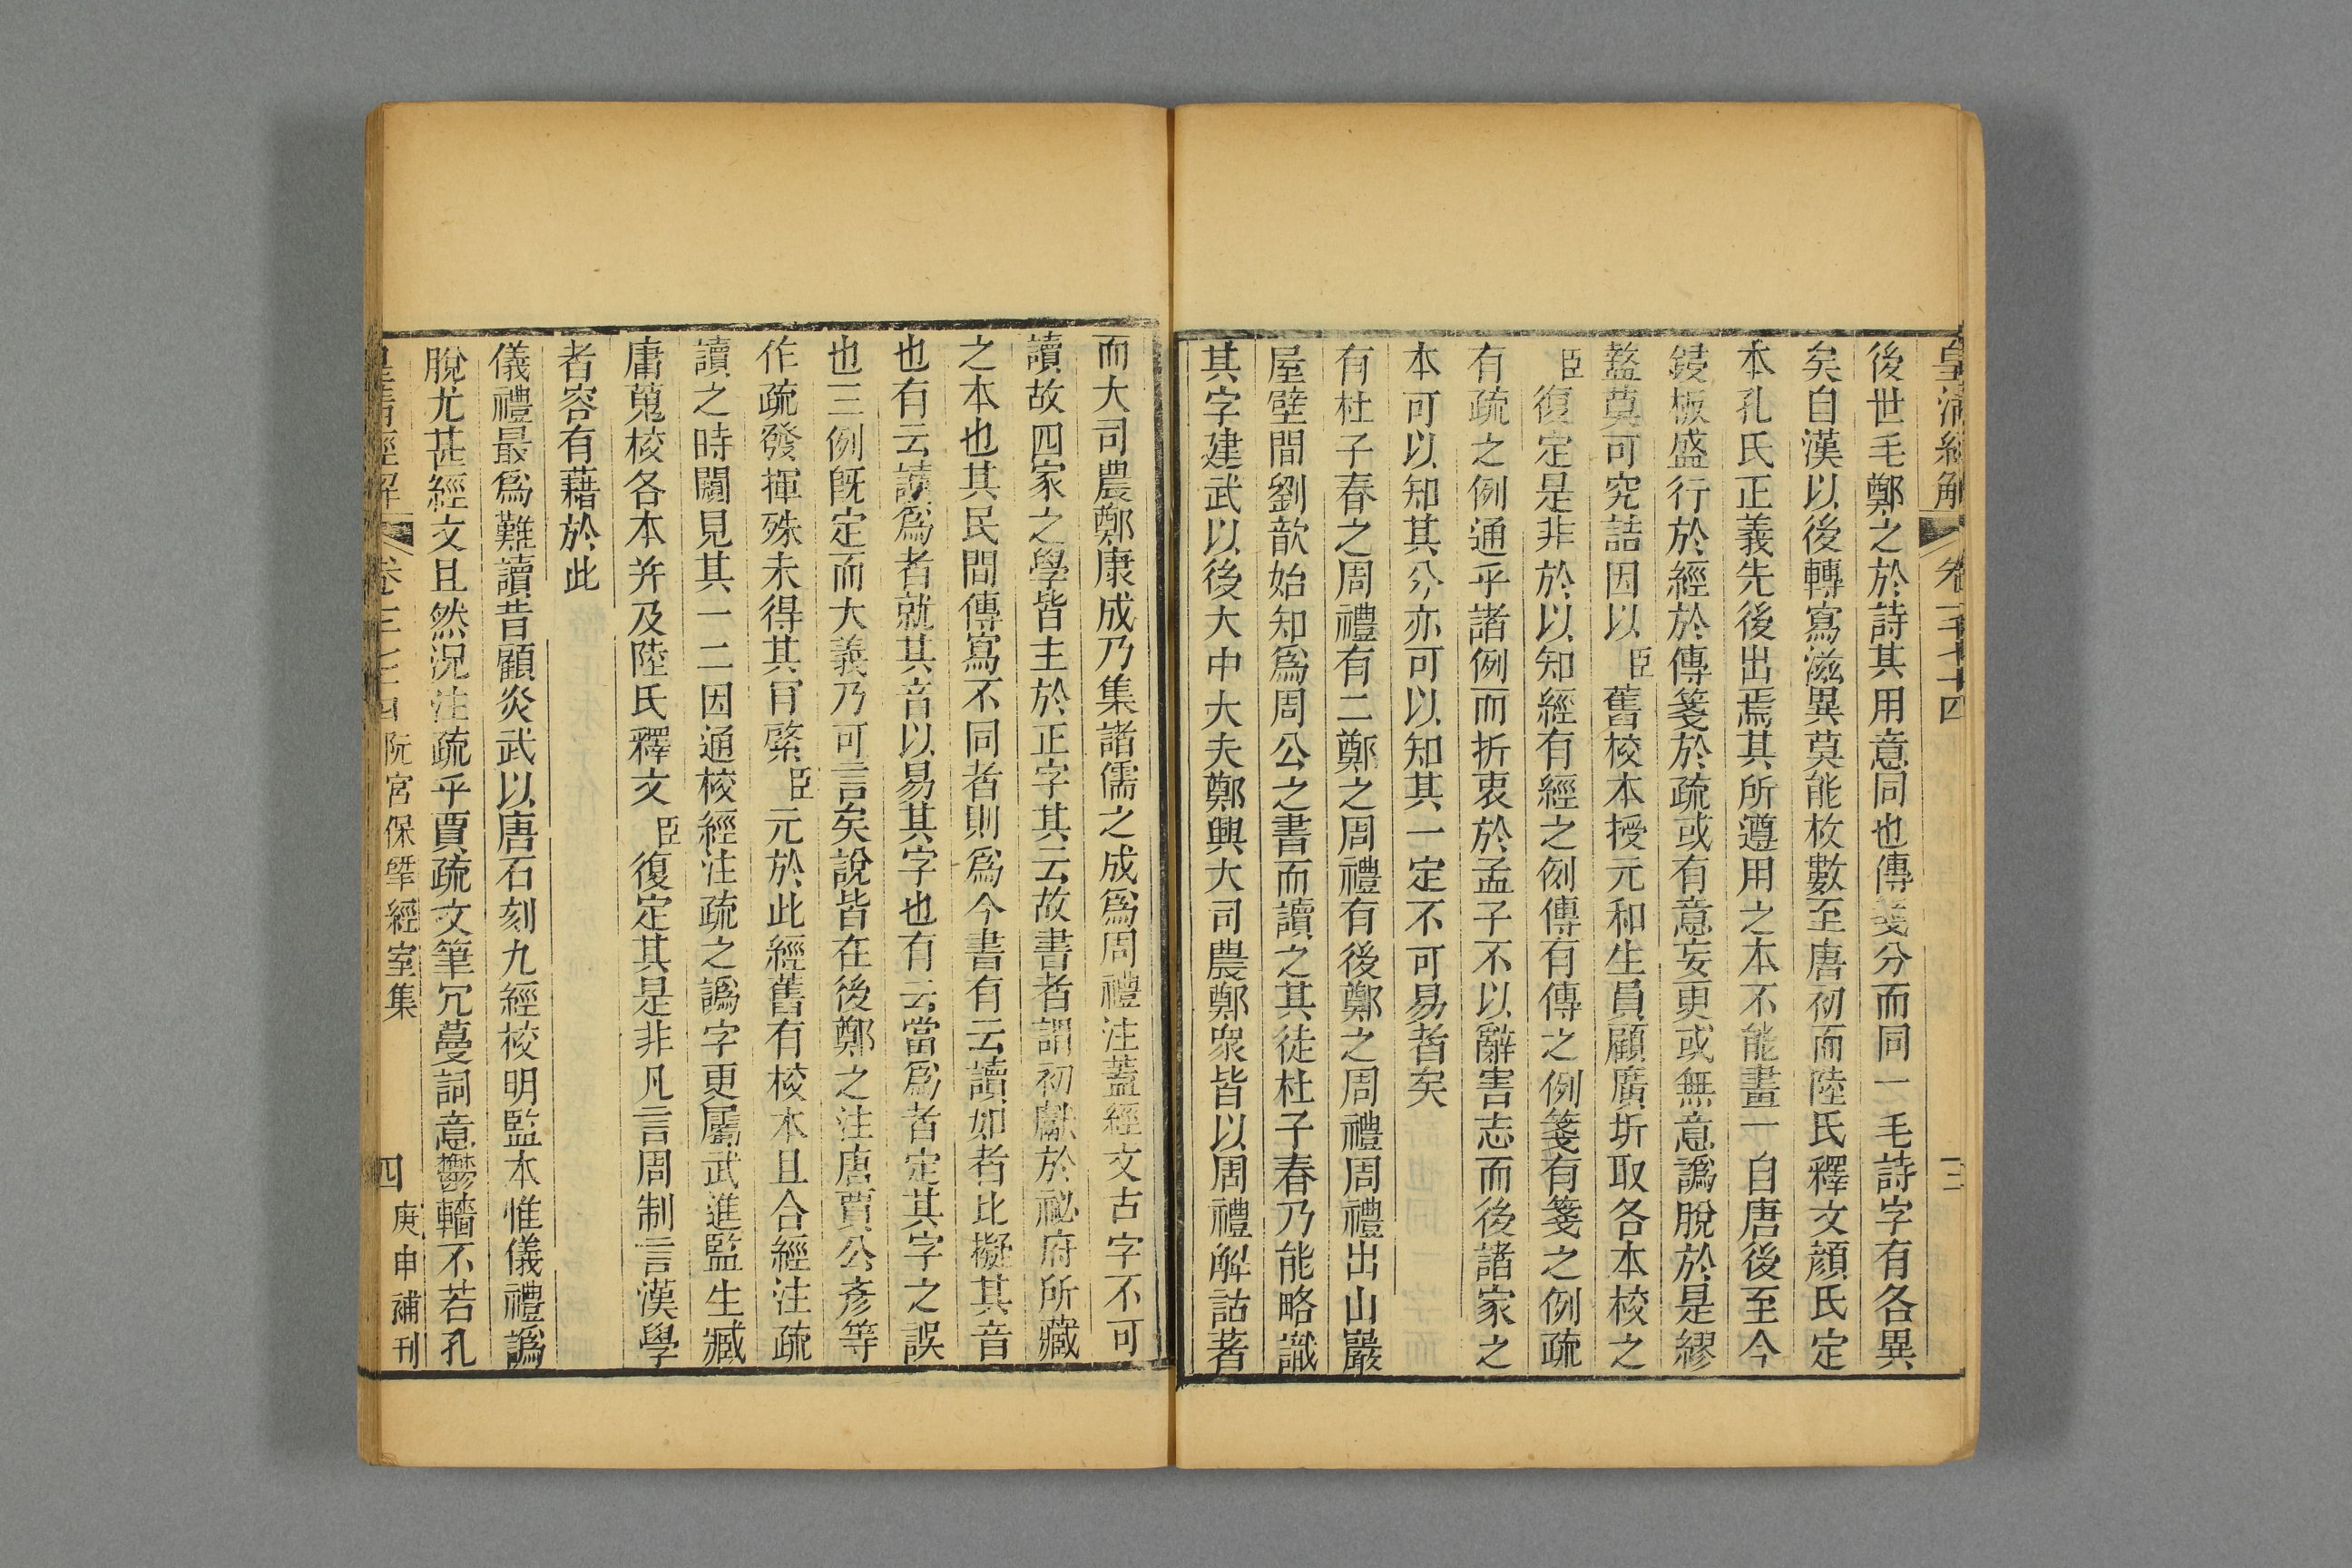 皇清經解
卷一千七十四
三
後世毛鄭之於詩其用意同也傳箋分而同一毛詩字有各異
矣自漢以後轉寫滋異莫能枚數至唐初而陸氏釋文顏氏定
本孔氏正義先後出焉其所遵用之本不能畫一自唐後至今
鋟板盛行於經於傳箋於疏或有意妄更或無意譌脫於是繆
盭莫可究詰因以臣舊校本授元和生員顧廣圻取各本校之
臣復定是非於以知經有經之例傳有傳之例箋有箋之例疏
有疏之例通乎諸例而折衷於孟子不以辭害志而後諸家之
本可以知其分亦可以知其一定不可易者矣
有杜子春之周禮有二鄭之周禮有後鄭之周禮周禮出山巖
屋壁間劉歆始知爲周公之書而讀之其徒杜子春乃能略識
其字建武以後大中大夫鄭興大司農鄭衆皆以周禮解詁著
而大司農鄭康成乃集諸儒之成爲周禮注蓋經文古字不可
讀故四家之學皆主於正字其云故書者謂初獻於祕府所藏
之本也其民間傳寫不同者則爲今書有云讀如者比擬其音
也有云讀爲者就其音以易其字也有云當爲者定其字之誤
也三例旣定而大義乃可言矣說皆在後鄭之注唐賈公彥等
作疏發揮殊未得其肎綮臣元於此經舊有校本且合經注疏
讀之時闚見其一二因通校經注疏之譌字更屬武進監生臧
庸蒐校各本并及陸氏釋文臣復定其是非凡言周制言漢學
者容有藉於此
儀禮最爲難讀昔顧炎武以唐石刻九經校明監本惟儀禮譌
脫尤甚經文且然況注疏乎賈疏文筆冗蔓詞意鬱轖不若孔
皇清經解
阮宮保揅經室集
四
庚申補刊